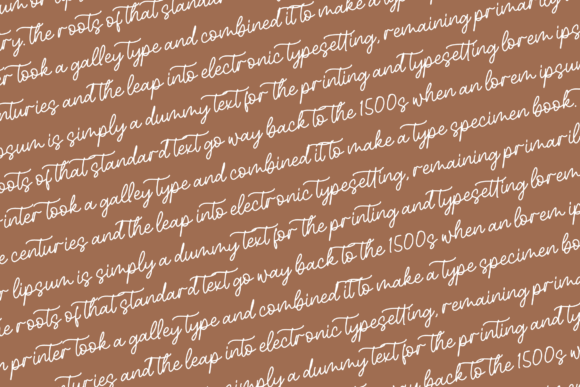 the roots of that standard
took a galley type and combined it to make a type
and the leap into electronic typesetting, remaining primarily
ipsum is simply a dummy text for the printing and typesetting lorem ips
oots of that standard text go way back to the 1500s when an lorem ipsum
rinter took a galley type and combined it to make a type specimen book.
e centuries and the leap into electronic typesetting, remaining primaril
r lipsum is simply a dummy text for the printing and typesetting lorem
e roots of that standard text go way back to the 1500s when an lorem ip
n printer took a galley type and combined it to make a type specimen boo
centuries and the leap into electronic typesetting, remaining prima
simply a dummy text for the printing and ty
way back to the 1500s w